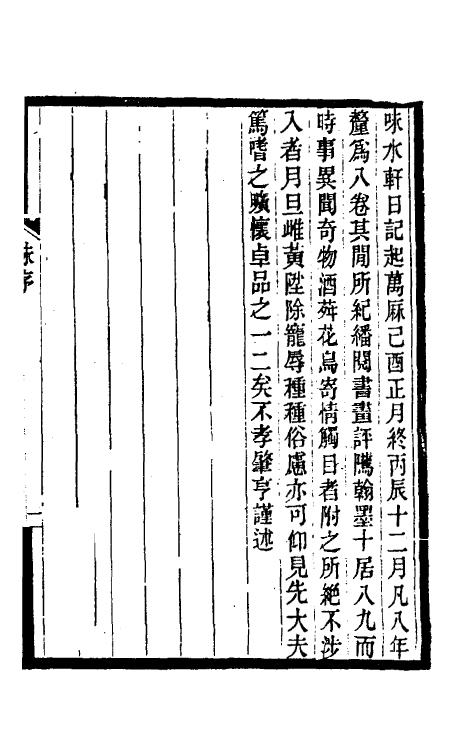 味水軒日記起萬厤己酉正月終丙辰十二月凡八年
釐爲八卷其閒所紀繙閱書畫評隲翰墨十居八九而
時事異聞奇物酒荈花鳥寄情觸目者附之所絕不涉
入者月旦雌黃陞除寵辱種種俗慮亦可仰見先大夫
篤嗜之曠懷卓品之一二矣不孝肇亨謹述
味序
一